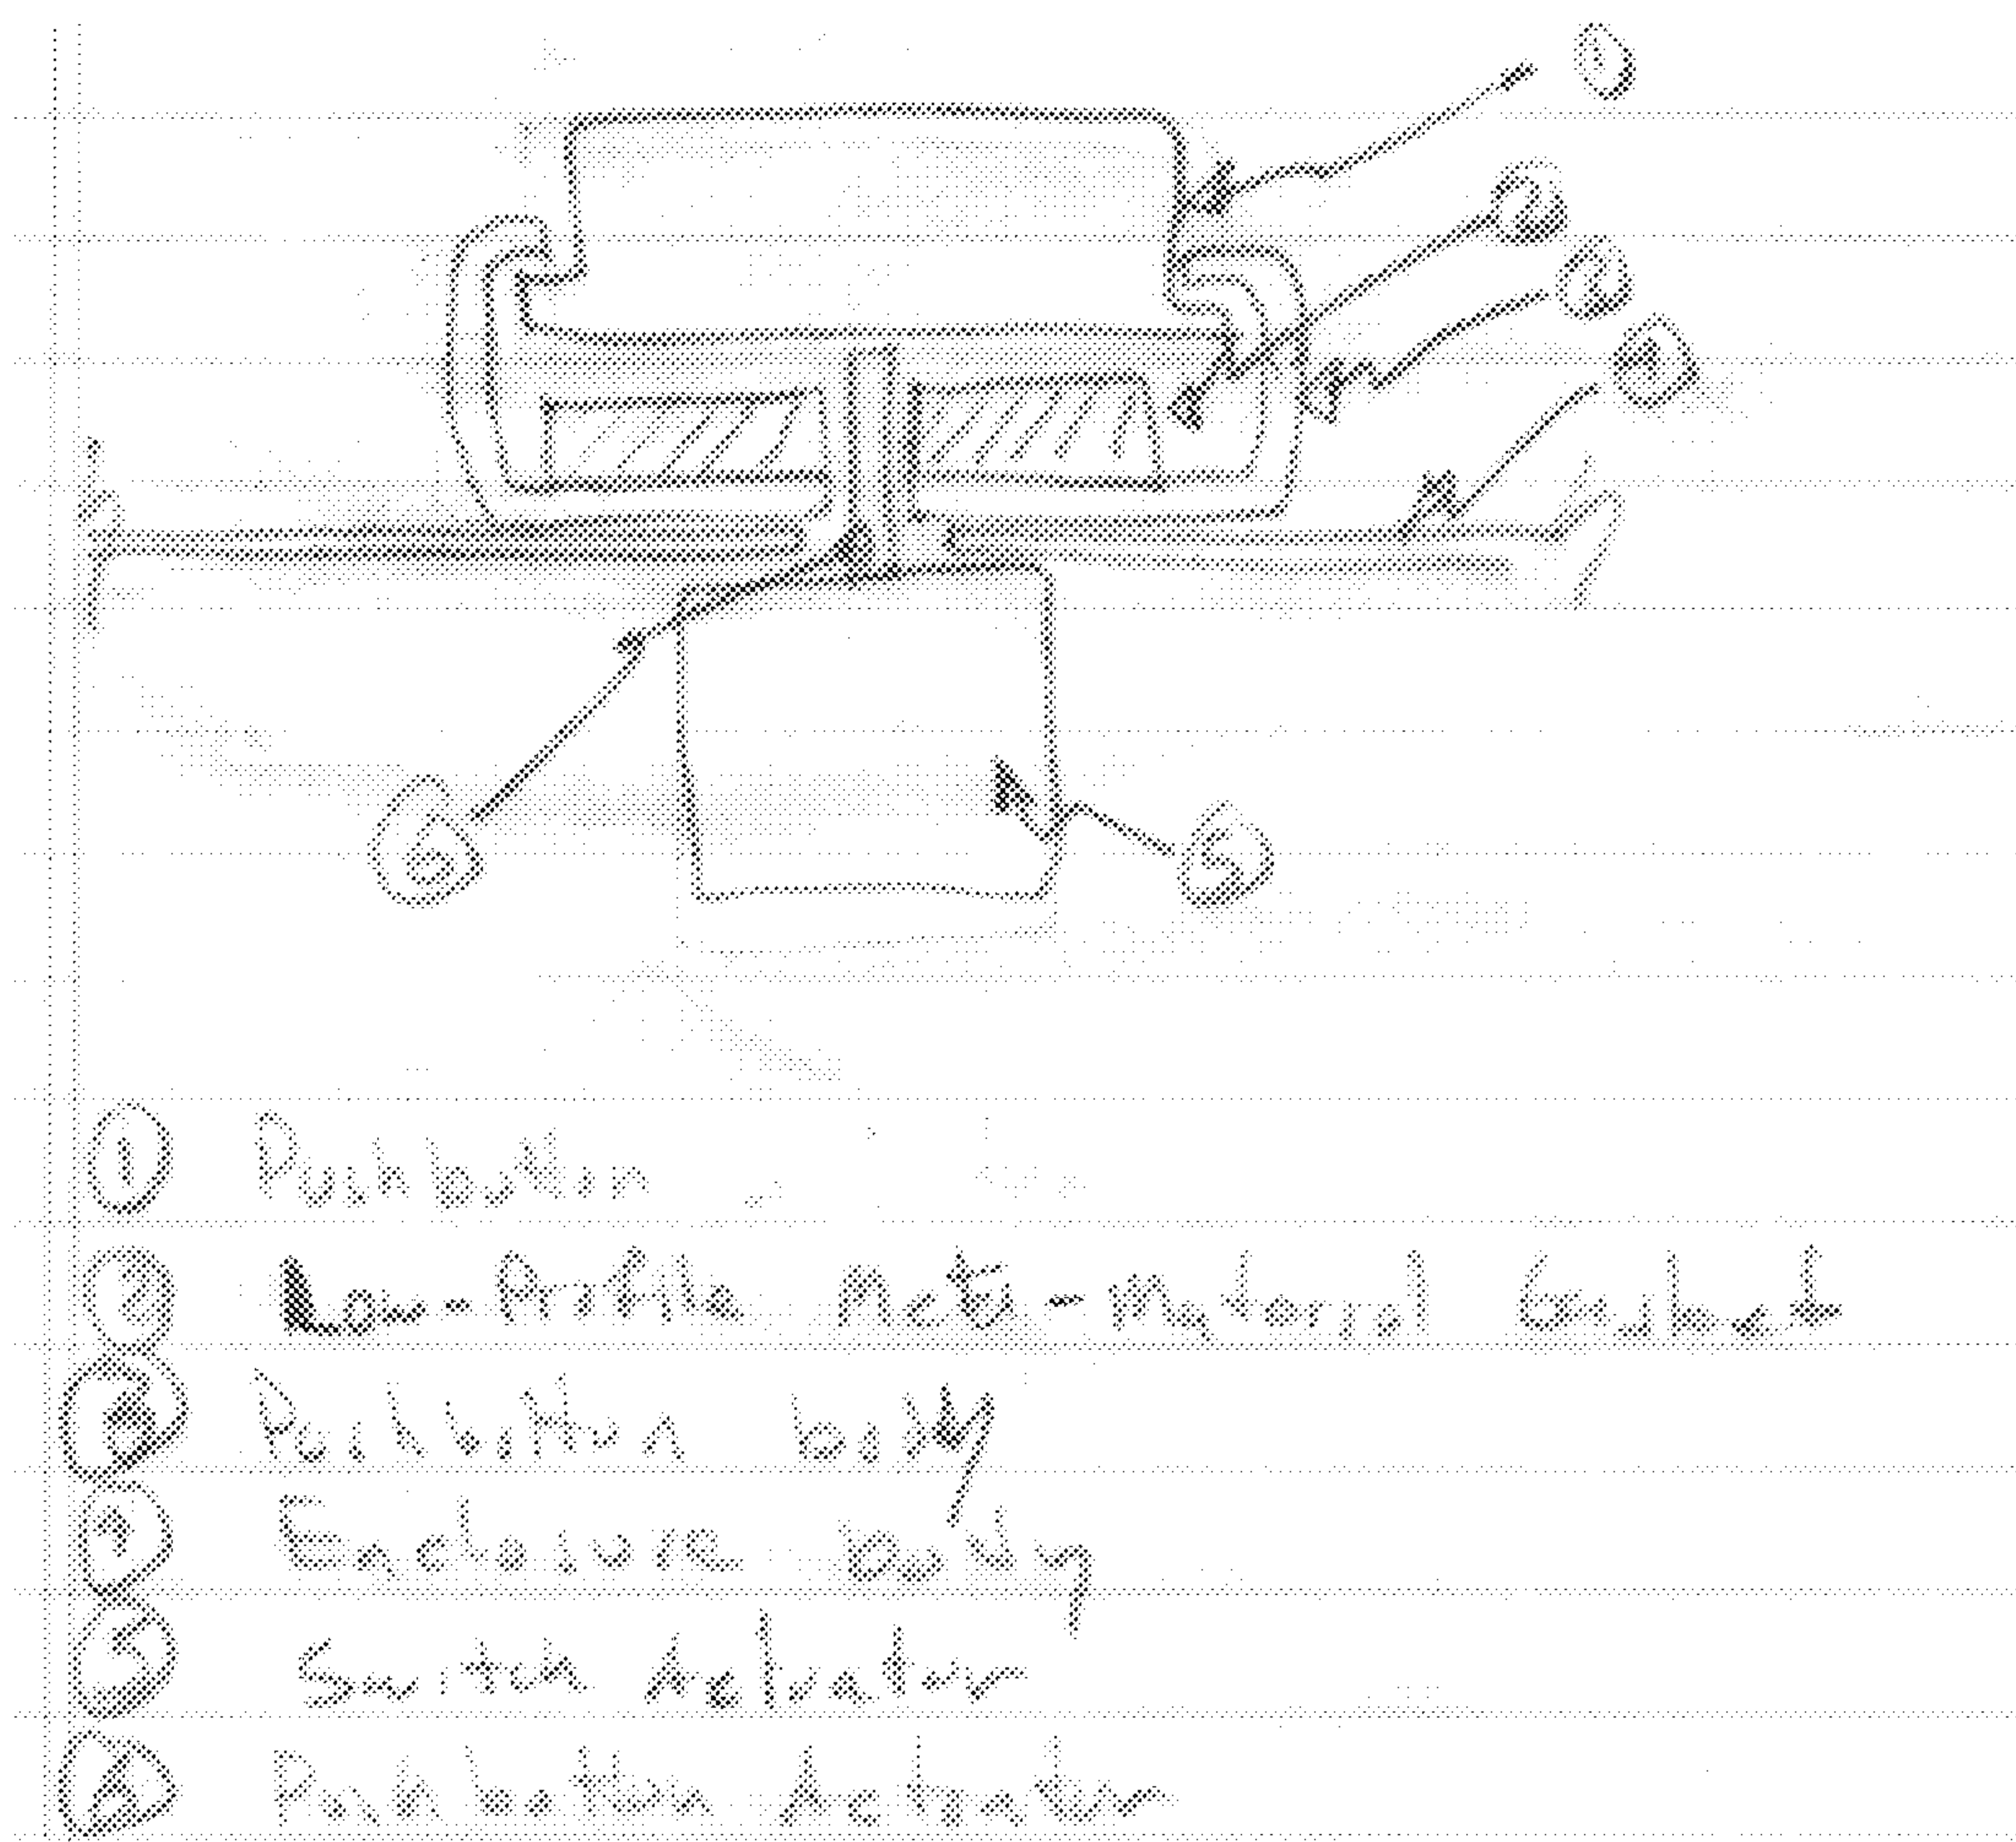 ①
②
③
④
⑥ ⑤
① Push button
② Low-Profile Meta-Material Gasket
③ Pushbutton body
④ Enclosure Body
⑤ Switch Actuator
⑥ Push button Actuator